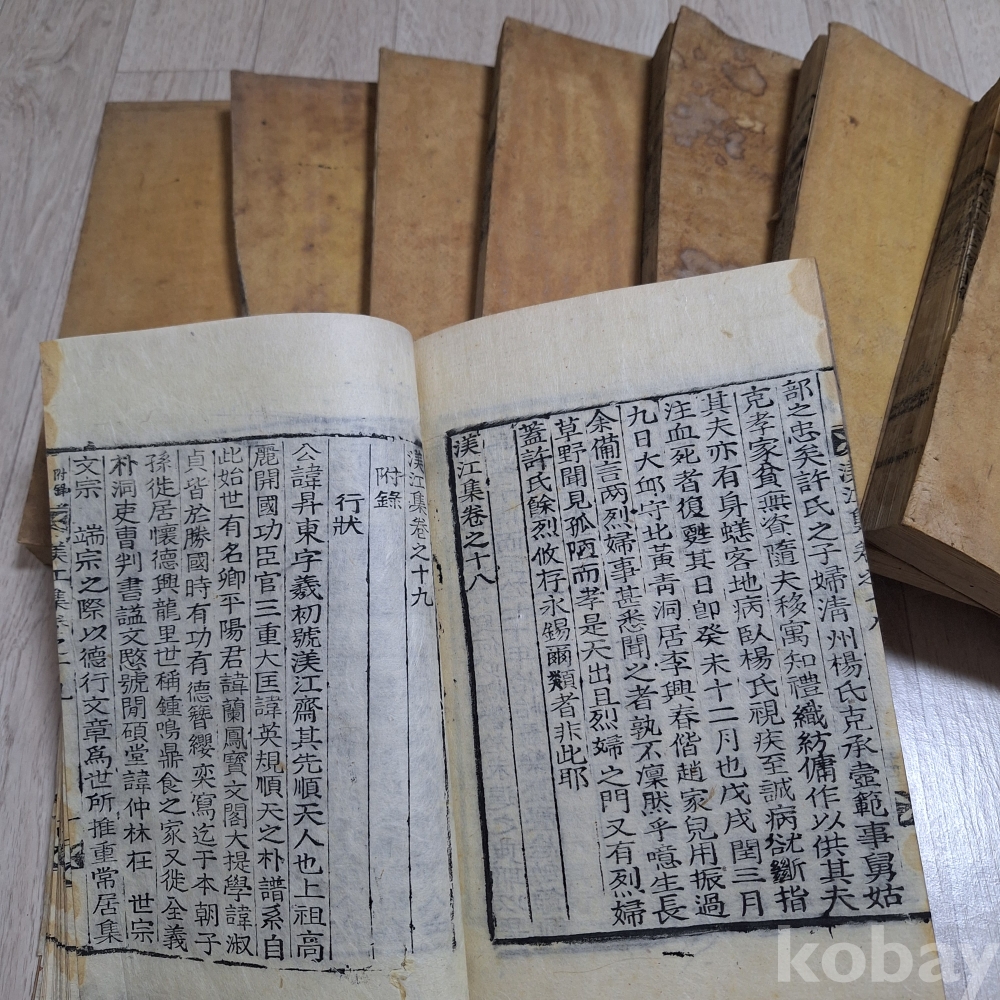 部之忠矣許氏之子婦淸州楊氏克承壼範事舅姑
克孝家貧無資隨夫移寓知禮織紡傭作以供其夫
其夫亦有身蟋客地病臥楊氏視疾至誠病谻斷指
注血死者復甦其日卽癸未十二月也戊戌閏三月
九日大邱守比黃靑洞居李興春偕趙家兒用振過
余備言两烈婦事甚悉聞之者孰不凜然乎噫生長
草野聞見孤陋而孝是天出且烈婦之門又有烈婦
蓋許氏餘烈攸存永錫爾類者非此耶
渼江集卷之十八
渼江集卷之十九
附錄
行狀
公諱昇東字羲初號渼江齋其先順天人也上祖高
麗開國功臣官三重大匡諱英規順天之朴譜系自
此始世有名卿平陽君諱蘭鳳寶文閣大提學諱淑
貞皆於勝國時有功有德簪纓奕寫迄于本朝子
孫徙居懷德興龍里世稱鍾鳴鼎食之家又徙全義
朴洞吏曹判書諡文愍號閒碩堂諱仲林在 世宗
文宗 端宗之際以德行文章爲世所推重常居集
附錄
kobay